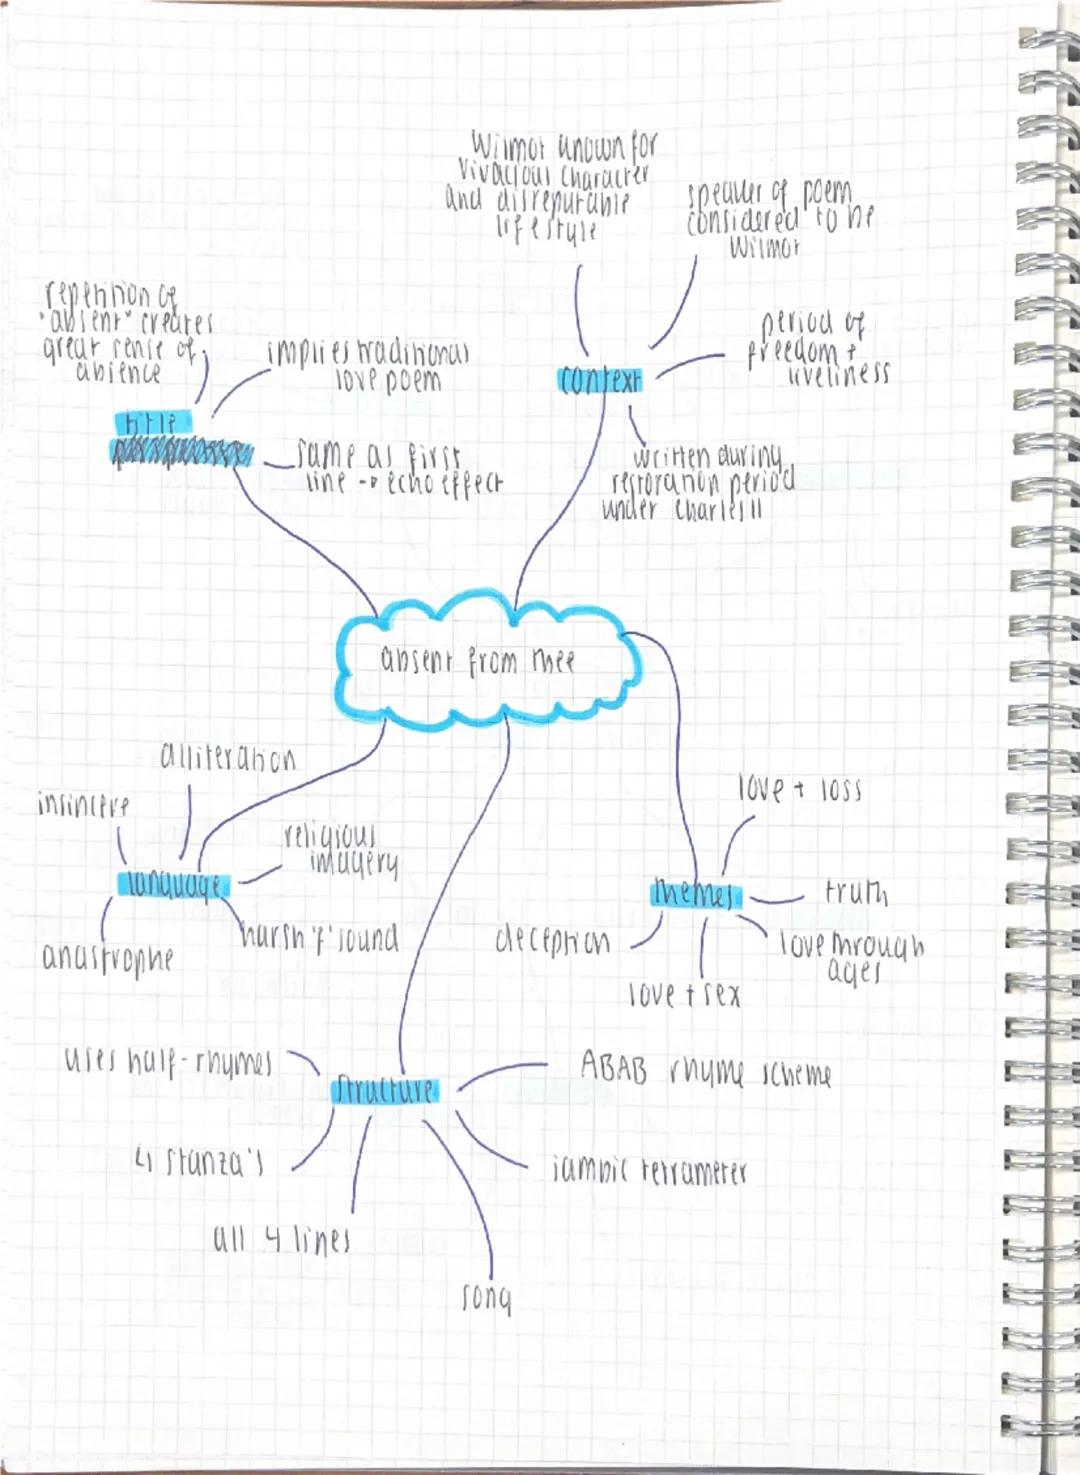 Wilmot known for
vivacious character
and disreputable
lifestyle
speaker of poem
considered to be
Wilmot
period of
freedom +
liveliness
context
written during
restoration period
under Charles II
repetition of
"absent" creates
great sense of
absence
implies traditional
love poem
title
same as first
line → echo effect
absent from thee
alliteration
insincere
religious
imagery
language
harsh 'f' sound
anastrophe
love + loss
themes
truth
deception
love through
ages
love + sex
uses half-rhymes
structure
ABAB rhyme scheme
4 stanza's
iambic tetrameter
all 4 lines
song